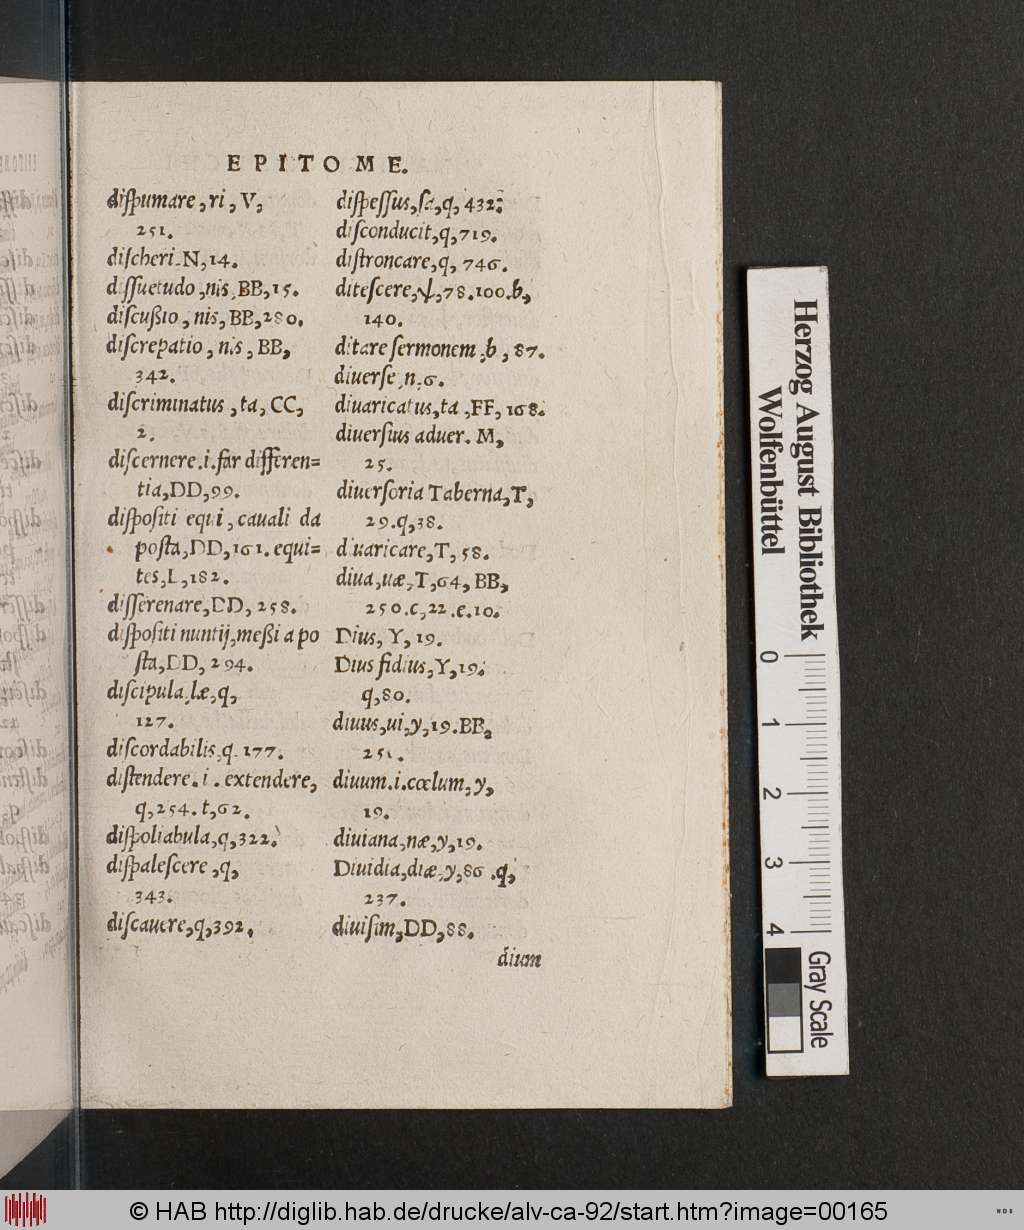 EPITOME.
diſpumare, ri, V,
251.
diſcheri. N, 14.
diſſuetudo, nis, BB, 15.
diſcußio, nis, BB, 280.
diſcrepatio, nis, BB,
342.
diſcriminatus, ta, CC,
2.
diſcernere. i. far differen=
tia, DD, 99.
diſpoſiti equi, cauali da
poſta, DD, 161. equi=
tes, L, 182.
diſſerenare, DD, 258.
diſpoſiti nuntij, meßi a po
ſta, DD, 294.
diſcipula, læ, q,
127.
diſcordabilis, q. 177.
diſtendere. i. extendere,
q, 254. t, 62.
diſpoliabula, q, 322.
diſpaleſcere, q,
343.
diſcauere, q, 392.
diſpeſſus, ſa, q, 432.
diſconducit, q, 719.
diſtroncare, q, 746.
diteſcere, ψ, 78. 100. b,
140.
ditare ſermonem, b, 87.
diuerſe, n, 6.
diuaricatus, ta, FF, 168.
diuerſius aduer. M,
25.
diuerſoria Taberna, T,
29. q, 38.
diuaricare, T, 58.
diua, uæ, T, 64, BB,
250. c, 22. e. 10.
Dius, Y, 19.
Dius fidius, Y, 19.
q, 80.
diuus, ui, y, 19. BB,
251.
diuum. i. cœlum, y,
19.
diuiana, næ, y, 19.
Diuidia, diæ, y, 86. q,
237.
diuiſim, DD, 88.
dium
Herzog August Bibliothek
Wolfenbüttel
0 1 2 3 4
Gray Scale
© HAB http://diglib.hab.de/drucke/alv-ca-92/start.htm?image=00165